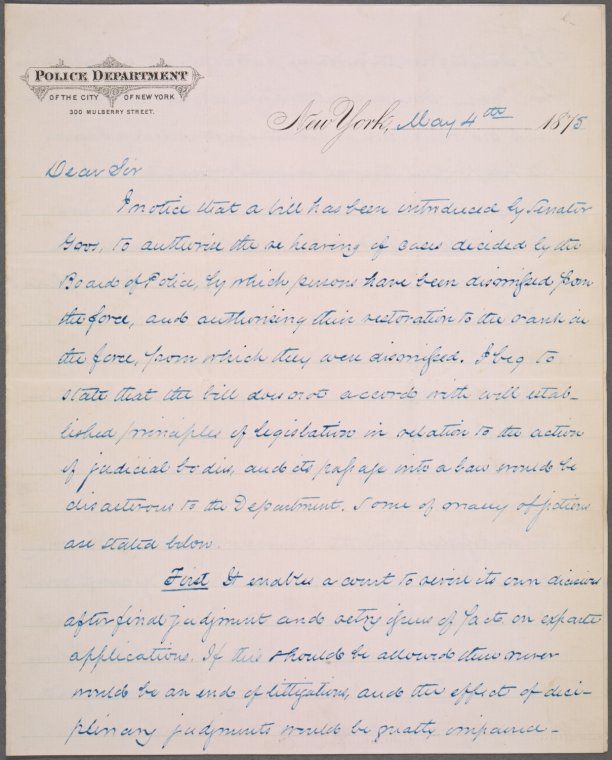 POLICE DEPARTMENT
OF THE CITY OF NEW YORK
300 MULBERRY STREET.
New York, May 4th 1875
Dear Sir
I notice that a bill has been introduced by Senator
to authorise the re hearing of cases decided by the
Board of Police, by which persons have been dismissed from
the force, and authorising their restoration to the rank in
the force, from which they were dismissed. I beg to
state that the bill does not accord with well estab-
lished principles of legislation in relation to the action
of judicial bodies, and its passage into a law would be
disasterous to the Department. Some of many objections
are stated below.
First It enables a court to revise its own decisions
after final judgment and retry issues of fact on exparte
applications. If this should be allowed there never
would be an end of litigation, and the effect of deci-
plinary judgments would be greatly impaired-